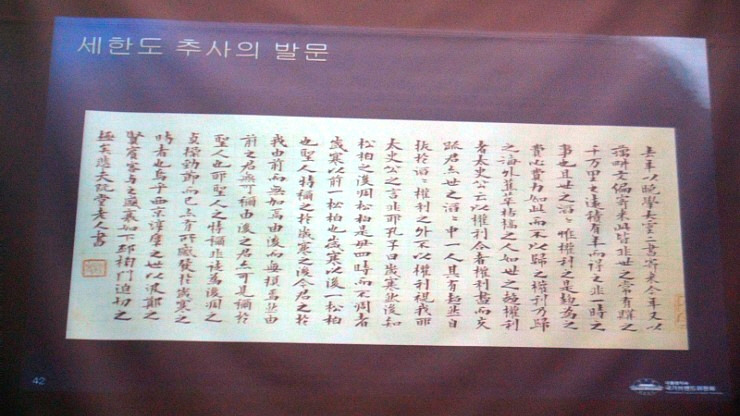 세한도 추사의 발문
去年以晩學大雲二書寄來今年又以
藕耕文編寄來此皆非世之常有購之
千萬里之遠積有年而得之非一時之
事也且世之滔〻惟權利之是趨爲之
費心費力如此而不以歸之權利乃歸
之海外蕉萃枯稿之人如世之趨權利
者太史公云以權利合者權利盡而交
疎君亦世之滔〻中一人其有超然自
拔於滔〻權利之外不以權利視我耶
太史公之言非耶孔子曰歲寒然後知
松柏之後凋松柏是毋四時而不凋者
歲寒以前一松柏也歲寒以後一松柏
也聖人特稱之於歲寒之後今君之於
我由前而無加焉由後而無損焉然由
前之君無可稱由後之君亦可見稱於
聖人也耶聖人之特稱非徒爲後凋之
貞操勁節而已亦有所感發於歲寒之
時者也烏乎西京淳厚之世以汲鄭之
賢賓客與之盛衰如下邳榜門迫切之
極矣悲夫阮堂老人書
42
대통령직속
국가브랜드위원회